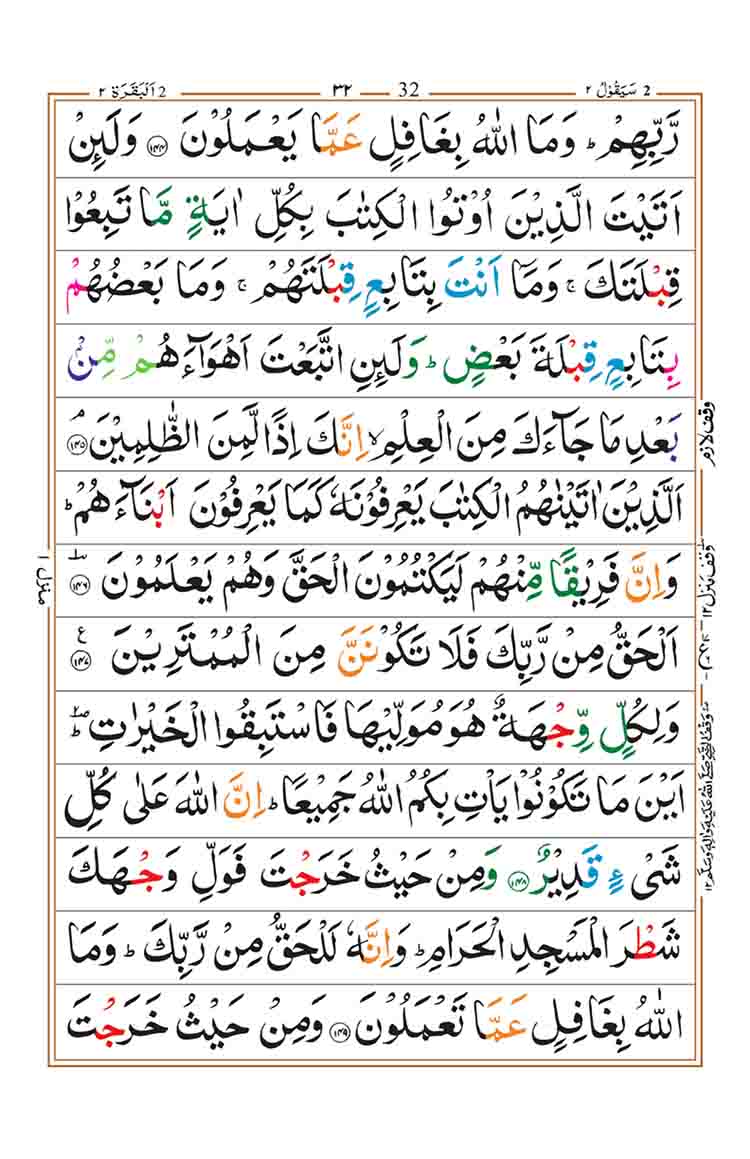 2 سَيَقُوۡلُ ۲
32 ۳۲
2 اَلۡبَقَرَة ۲
رَّبِّهِمۡ‌ؕ وَمَا اللّٰهُ بِغَافِلٍ عَمَّا يَعۡمَلُوۡنَ ﴿۱۴۴﴾ وَلَٮِٕنۡ
اَتَيۡتَ الَّذِيۡنَ اُوۡتُوا الۡكِتٰبَ بِكُلِّ اٰيَةٍ مَّا تَبِعُوۡا
قِبۡلَتَكَ‌ۚ وَمَآ اَنۡتَ بِتَابِعٍ قِبۡلَتَهُمۡ‌ۚ وَمَا بَعۡضُهُمۡ
بِتَابِعٍ قِبۡلَةَ بَعۡضٍؕ وَلَٮِٕنِ اتَّبَعۡتَ اَهۡوَآءَهُمۡ مِّنۡۢ
بَعۡدِ مَا جَآءَكَ مِنَ الۡعِلۡمِۙ اِنَّكَ اِذًا لَّمِنَ الظّٰلِمِيۡنَ‌ۘ ﴿۱۴۵﴾
اَلَّذِيۡنَ اٰتَيۡنٰهُمُ الۡكِتٰبَ يَعۡرِفُوۡنَهٗ كَمَا يَعۡرِفُوۡنَ اَبۡنَآءَهُمۡؕ
وَاِنَّ فَرِيۡقًا مِّنۡهُمۡ لَيَكۡتُمُوۡنَ الۡحَقَّ وَهُمۡ يَعۡلَمُوۡنَؔ ﴿۱۴۶﴾
اَلۡحَقُّ مِنۡ رَّبِّكَ فَلَا تَكُوۡنَنَّ مِنَ الۡمُمۡتَرِيۡنَ ﴿۱۴۷﴾ ع
وَلِكُلٍّ وِّجۡهَةٌ هُوَ مُوَلِّيۡهَا فَاسۡتَبِقُوا الۡخَيۡرٰتِؕ
اَيۡنَ مَا تَكُوۡنُوۡا يَاۡتِ بِكُمُ اللّٰهُ جَمِيۡعًاؕ اِنَّ اللّٰهَ عَلٰى كُلِّ
شَىۡءٍ قَدِيۡرٌ ﴿۱۴۸﴾ وَمِنۡ حَيۡثُ خَرَجۡتَ فَوَلِّ وَجۡهَكَ
شَطۡرَ الۡمَسۡجِدِ الۡحَرَامِؕ وَاِنَّهٗ لَلۡحَقُّ مِنۡ رَّبِّكَؕ وَمَا
اللّٰهُ بِغَافِلٍ عَمَّا تَعۡمَلُوۡنَ ﴿۱۴۹﴾ وَمِنۡ حَيۡثُ خَرَجۡتَ
وقف لازم
وقف منزل ۱۲
وقف النبي صلى الله عليه واله وسلم ۱۲
منزل ۱